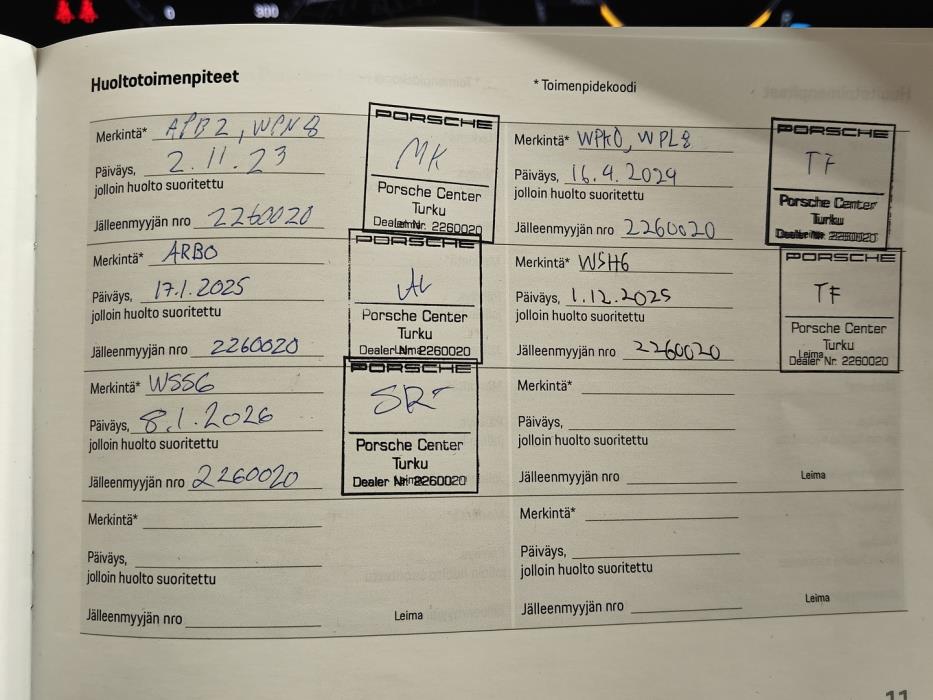 0 300
Huoltotoimenpiteet
* Toimenpidekoodi
Merkintä* APB2, WPN8
Päiväys, 2.11.23
jolloin huolto suoritettu
Jälleenmyyjän nro 2260020
PORSCHE
MK
Porsche Center
Turku
Dealer Nr. 2260020
Merkintä* WPK0, WPL8
Päiväys, 16.4.2024
jolloin huolto suoritettu
Jälleenmyyjän nro 2260020
PORSCHE
TF
Porsche Center
Turku
Dealer Nr. 2260020
Merkintä* ARB0
Päiväys, 17.1.2025
jolloin huolto suoritettu
Jälleenmyyjän nro 2260020
PORSCHE
Porsche Center
Turku
Dealer Nr. 2260020
Merkintä* WSH6
Päiväys, 1.12.2025
jolloin huolto suoritettu
Jälleenmyyjän nro 2260020
PORSCHE
TF
Porsche Center
Turku
Leima
Dealer Nr. 2260020
Merkintä* WSS6
Päiväys, 8.1.2026
jolloin huolto suoritettu
Jälleenmyyjän nro 2260020
PORSCHE
SR
Porsche Center
Turku
Dealer Nr. 2260020
Merkintä*
Päiväys,
jolloin huolto suoritettu
Jälleenmyyjän nro
Leima
Merkintä*
Päiväys,
jolloin huolto suoritettu
Jälleenmyyjän nro
Leima
Merkintä*
Päiväys,
jolloin huolto suoritettu
Jälleenmyyjän nro
Leima
11